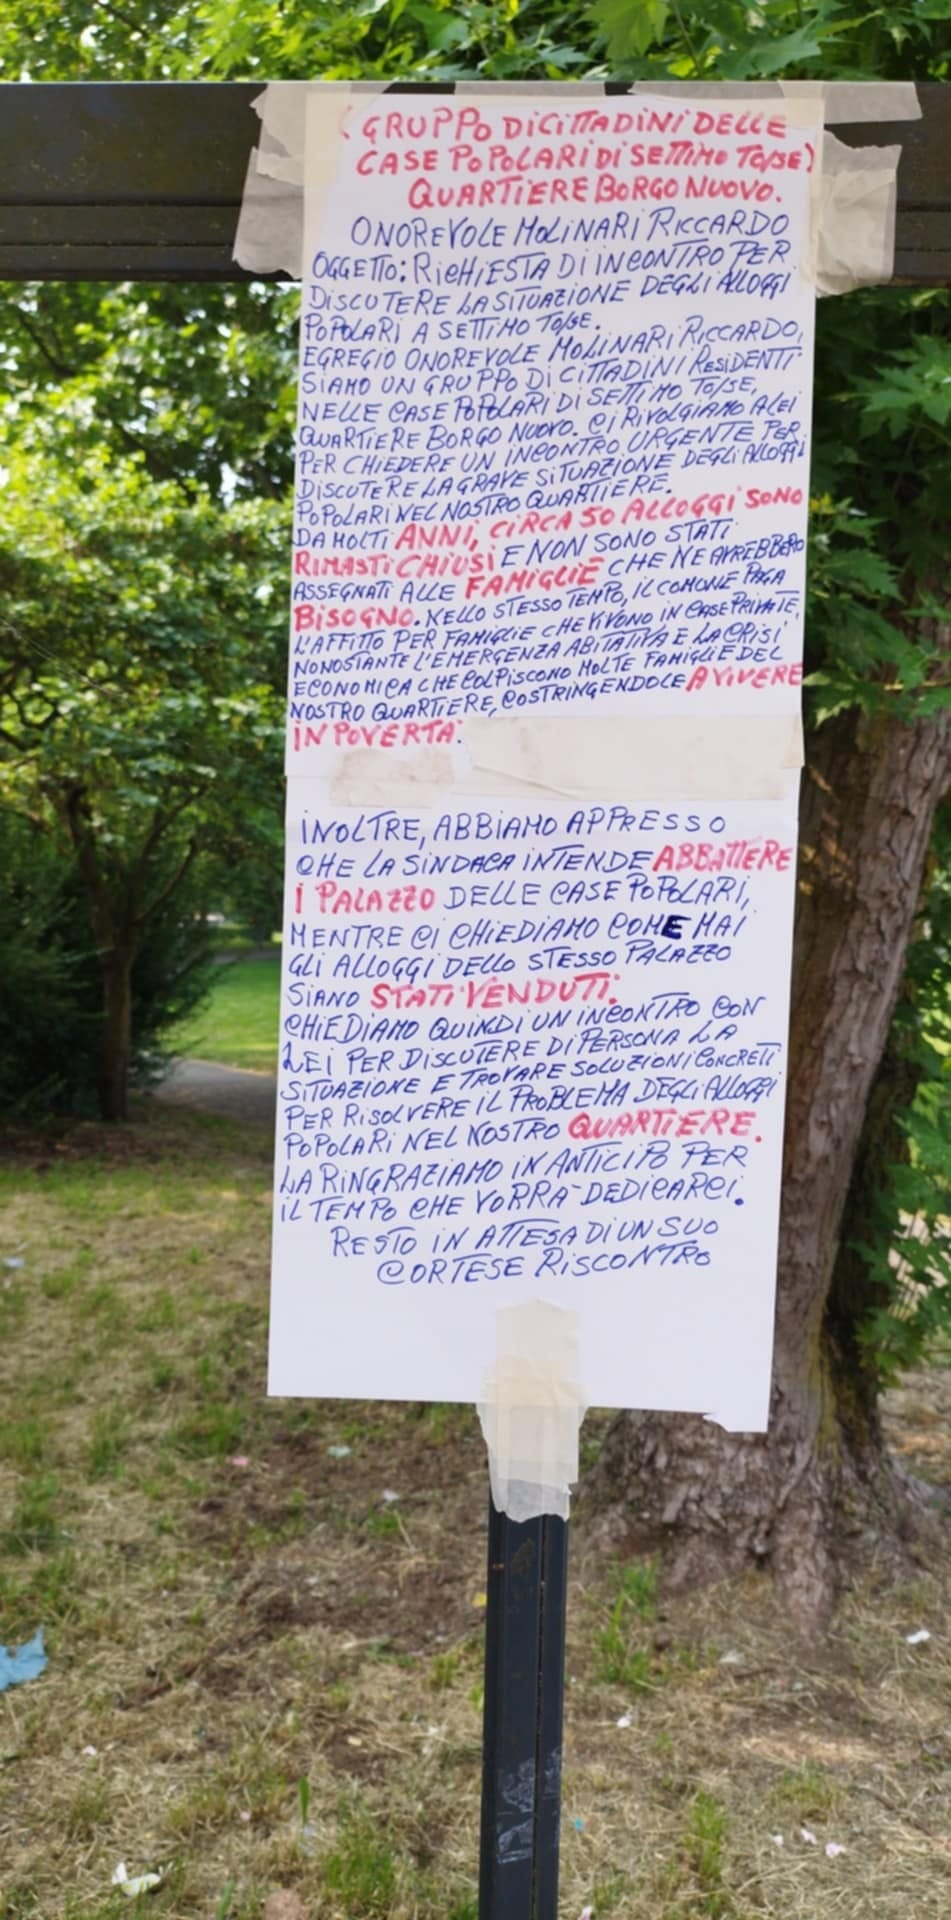 (GRUPPO DI CITTADINI DELLE
CASE POPOLARI DI SETTIMO TO/SE)
QUARTIERE BORGO NUOVO.
ONOREVOLE MOLINARI RICCARDO
OGGETTO: RICHIESTA DI INCONTRO PER
DISCUTERE LA SITUAZIONE DEGLI ALLOGGI
POPOLARI A SETTIMO TO/SE.
EGREGIO ONOREVOLE MOLINARI RICCARDO,
SIAMO UN GRUPPO DI CITTADINI RESIDENTI
NELLE CASE POPOLARI DI SETTIMO TO/SE,
QUARTIERE BORGO NUOVO. CI RIVOLGIAMO A LEI
PER CHIEDERE UN INCONTRO URGENTE PER
DISCUTERE LA GRAVE SITUAZIONE DEGLI ALLOGGI
POPOLARI NEL NOSTRO QUARTIERE.
DA MOLTI ANNI, CIRCA 50 ALLOGGI SONO
RIMASTI CHIUSI E NON SONO STATI
ASSEGNATI ALLE FAMIGLIE CHE NE AVREBBERO
BISOGNO. NELLO STESSO TEMPO, IL COMONE PAGA
L'AFFITTO PER FAMIGLIE CHE VIVONO IN CASE PRIVATE,
NONOSTANTE L'EMERGENZA ABITATIVA E LA CRISI
ECONOMICA CHE COLPISCONO MOLTE FAMIGLIE DEL
NOSTRO QUARTIERE, COSTRINGENDOLE A VIVERE
IN POVERTA.
INOLTRE, ABBIAMO APPRESSO
CHE LA SINDACA INTENDE ABBATTERE
I PALAZZO DELLE CASE POPOLARI,
MENTRE CI CHIEDIAMO COME MAI
GLI ALLOGGI DELLO STESSO PALAZZO
SIANO STATI VENDUTI.
CHIEDIAMO QUINDI UN INCONTRO CON
LEI PER DISCUTERE DI PERSONA LA
SITUAZIONE E TROVARE SOLUZIONI CONCRETI
PER RISOLVERE IL PROBLEMA DEGLI ALLOGGI
POPOLARI NEL NOSTRO QUARTIERE.
LA RINGRAZIAMO IN ANTICIPO PER
IL TEMPO CHE VORRA- DEDICARCI.
RESTO IN ATTESA DI UN SUO
CORTESE RISCONTRO